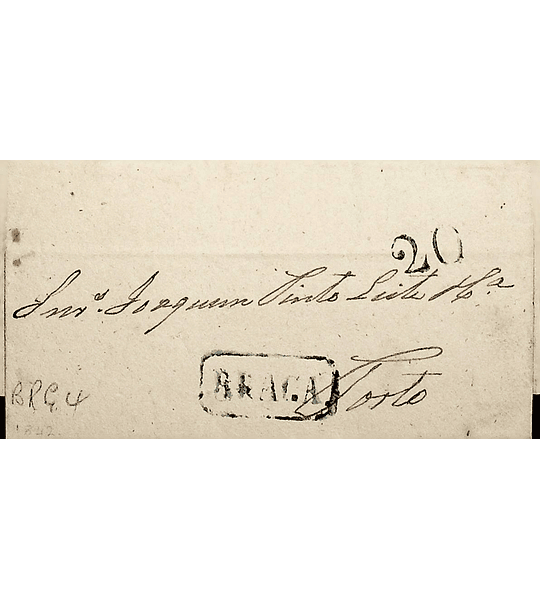 20
Snr.s Joaquim Pinto Leite Fº.ª
BRAGA
Porto
BRG 4
1842